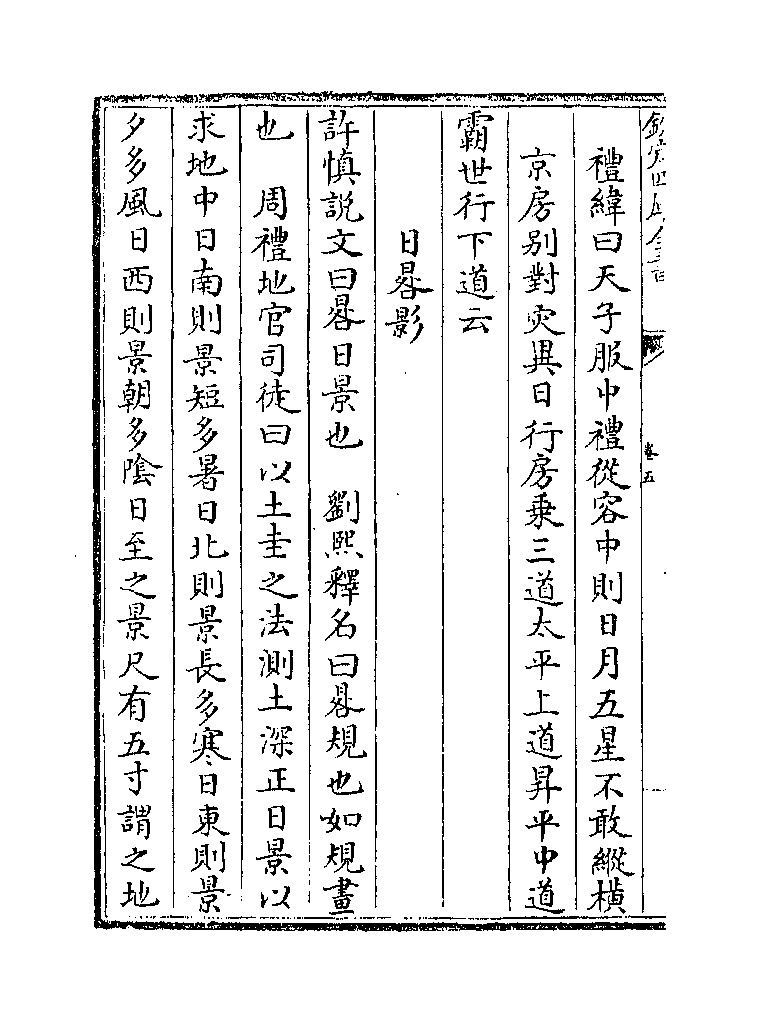 禮緯曰天子服中禮從容中則日月五星不敢縱橫
京房别對灾異日行房乗三道太平上道昇平中道
霸世行下道云
日晷影
許慎説文曰晷日景也　劉熙釋名曰晷規也如規畫
也　周禮地官司徒曰以土圭之法測土深正日景以
求地中日南則景短多暑日北則景長多寒日東則景
夕多風日西則景朝多隂日至之景尺有五寸謂之地
卷五